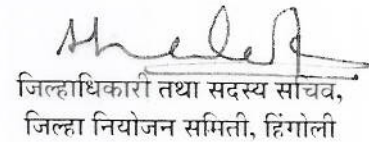 जिल्हाधिकारी तथा सदस्य सचिव,
जिल्हा नियोजन समिती, हिंगोली